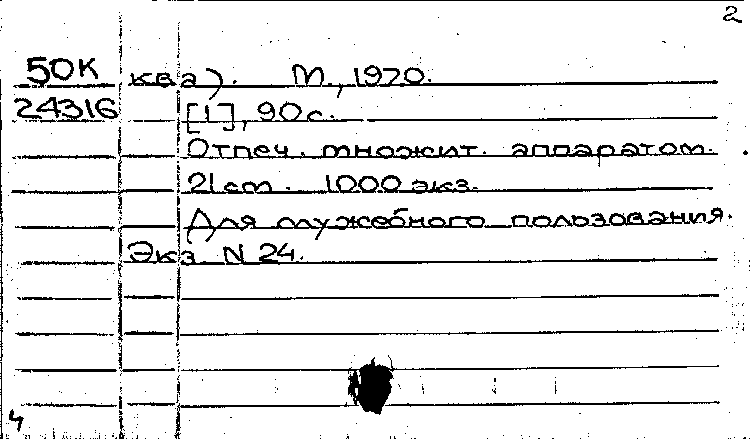 2
50К ква). М., 1970.
24316 [1], 90 с.
Отпеч. множит. аппаратом.
21 cm. 1000 экз.
Для служебного пользования.
Экз N 24.
4